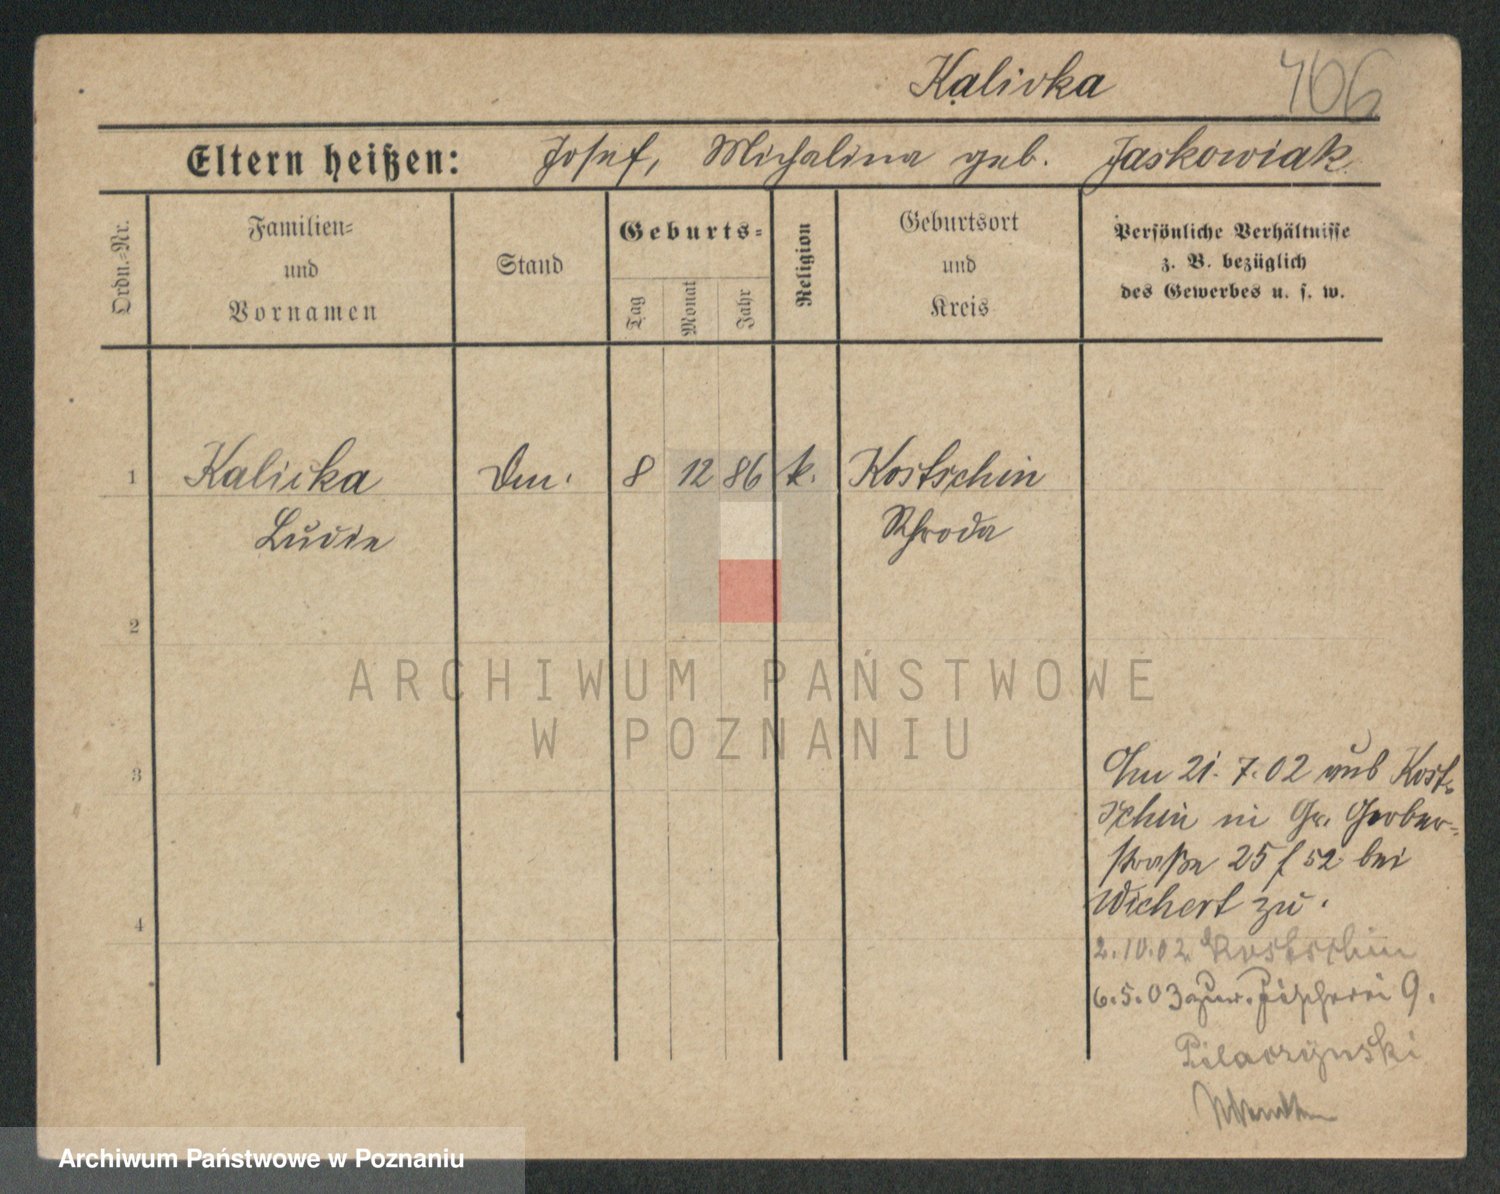 Kalivka 406
Eltern heißen: Josef, Michalina geb. Jaskowiak
Ordn.-Nr.
Familien-
und
Vornamen
Stand
Geburts-
Tag
Monat
Jahr
Religion
Geburtsort
und
Kreis
Persönliche Verhältnisse
z. B. bezüglich
des Gewerbes u. s. w.
1 Kalicka 8 12 86 k. Kostschin
Schroda
2
ARCHIWUM PAŃSTWOWE
W POZNANIU
3
Am 21. 7. 02 aus Kost-
schin in Gr. Gerber-
straße 25 / 52 bei
Wichert zu.
4
2.10.02 Kostschin
6.5.03 zur. Fischerei 9.
Pilaczynski
Archiwum Państwowe w Poznaniu